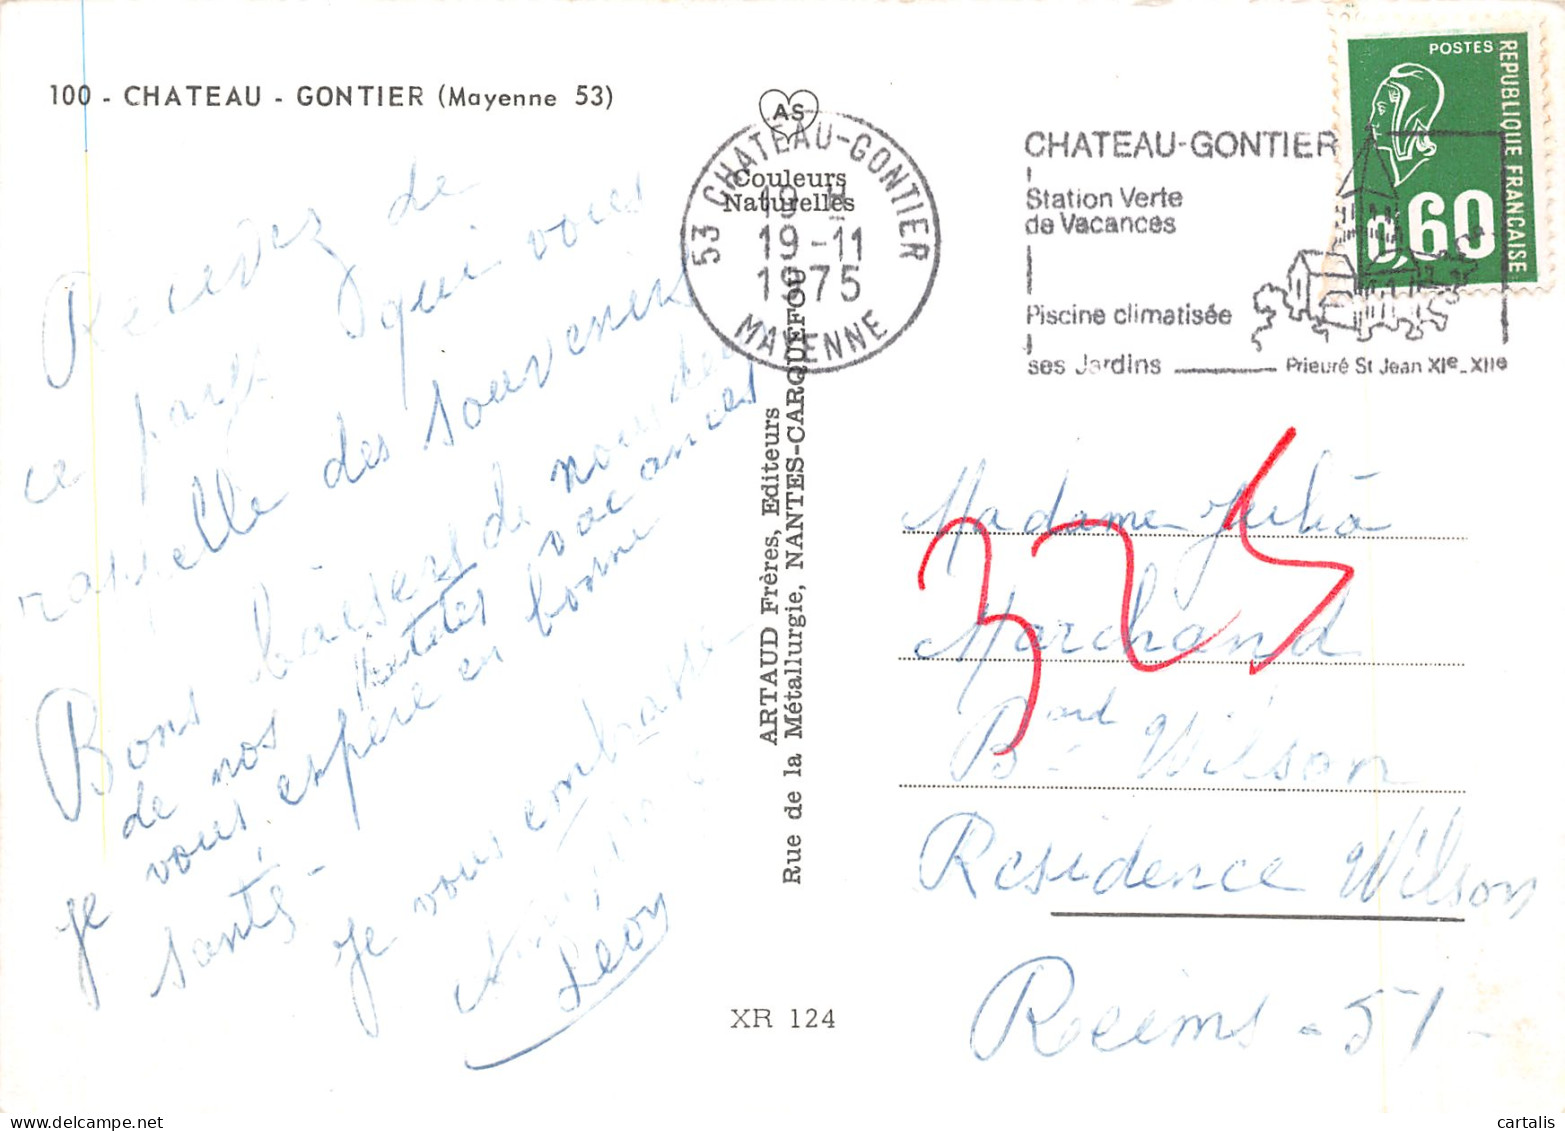 100 - CHATEAU - GONTIER (Mayenne 53)
Recevez de
ce pays qui vous
rappelle des souvenirs
Bons baisers de nous deux
de nos vacances
je vous espère en bonne
santé -
je vous embrasse
Léon
AS
Couleurs
Naturelles
ARTAUD Frères, Editeurs
Rue de la Métallurgie, NANTES-CARQUEFOU
XR 124
53 CHATEAU-GONTIER
19 H
19-11
1975
MAYENNE
CHATEAU-GONTIER
Station Verte
de Vacances
Piscine climatisée
ses Jardins
Prieuré St Jean XIe-XIIe
POSTES
REPUBLIQUE FRANCAISE
0,60
325
Madame Julia
Marchand
Bard Wilson
Residence Wilson
Reims - 51 -
cartalis